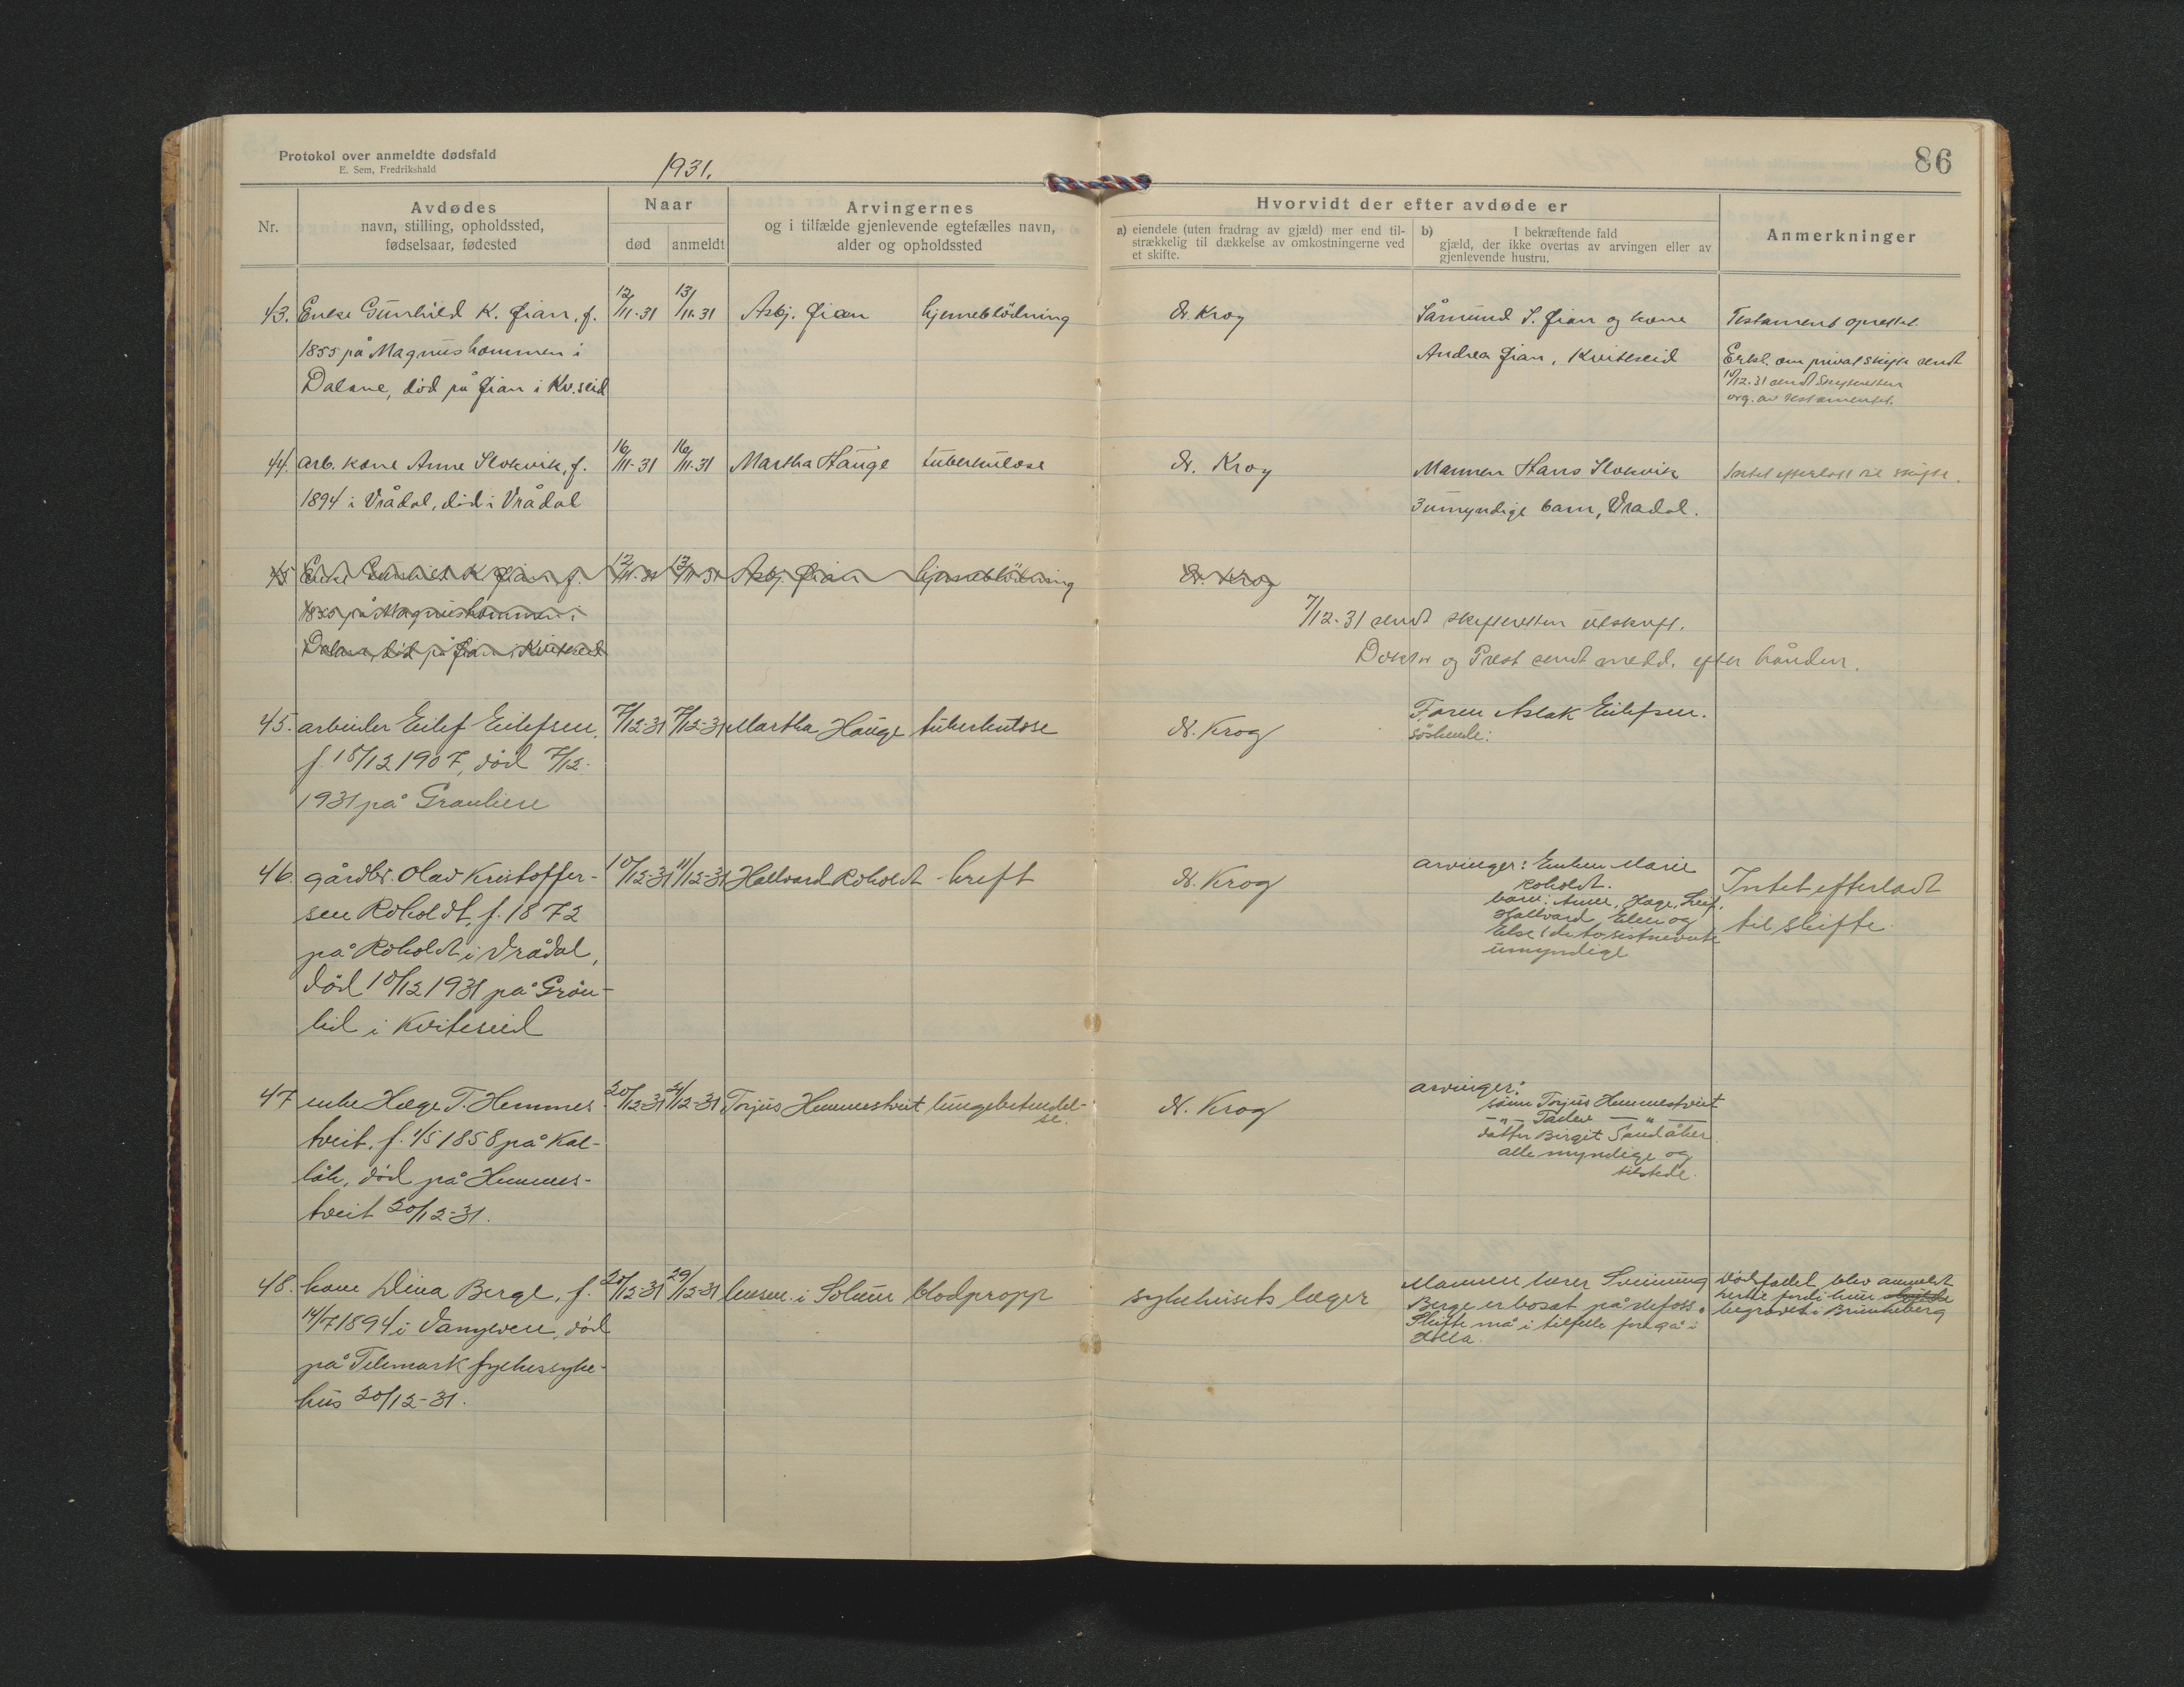 Protokol over anmeldte dødsfald
E. Sem, Fredrikshald
1931.
86
Nr.
Avdødes
navn, stilling, opholdssted,
fødselsaar, fødested
Naar
død
anmeldt
Arvingernes
og i tilfælde gjenlevende egtefælles navn,
alder og opholdssted
Hvorvidt der efter avdøde er
a) eiendele (uten fradrag av gjæld) mer end til-
strækkelig til dækkelse av omkostningerne ved
et skifte.
b) I bekræftende fald
gjæld, der ikke overtas av arvingen eller av
gjenlevende hustru.
Anmerkninger
43. Enke Gunhild K. Øian, f.
1855 på Magnushommen i
Dalane, död på Øian i Kv.seid
12/11-31
13/11.31
Asbj. Øian
hjerneblödning
Dr. Krog
Såmund S. Øian og kone
Andrea Øian, Kviteseid
Testament oprettet.
Erkl. om privat skifte sendt
/12.31 sendt skifteretten
org. av testamentet.
44. arb. kone Anne Slokvik, f.
1894 i Vrådal, död i Vrådal
16/11-31
16/11.31
Martha Hauge
tuberkulose
Dr. Krog
Mannen Hans Slokvik
3 umyndige barn, Vradal.
Intet efterlatt til skifte.
45 Enke Gunhild K Øian f.
1855 på Magnushommen i
Dalane, död på Øian i Kviteseid
12/11.31
13/11 31
Asbj. Øian
hjerneblödning
Dr. Krog
7/12-31 sendt skifteretten utskrift.
Doktor og Prest sendt medd. efter hånden.
45. arbeider Eilef Eilefsen,
f. 18/12 1907, död 7/12-
1931 på Granlien
7/12-31
7/12-31
Martha Hauge
tuberkulose
Dr. Krog
Faren Aslak Eilefsen.
söskende:
46. gårdbr. Olav Kristoffer-
sen Roholdt, f. 1872
på Roholdt i Vrådal,
död 10/12 1931 på Grön-
lid i Kviteseid
10/12-31
11/12-31
Hallvard Roholdt
kreft
Dr. Krog
arvinger: Enken Marie
Roholdt.
barn: Anne, Hæge, Leif,
Hallvard, Elen og
Else (de to sistnevnte
umyndige
Intet efterladt
til skifte.
47 enke Hæge T. Hemmes-
tveit. f. 1/5 1858 på Kal-
låk, död på Hemmes-
tveit 20/12-31.
20/12-31
21/12-31
Torjus Hemmestveit
lungebetendel-
se.
Dr. Krog
arvinger:
sönn Torjus Hemmestveit
— " — Tarlev — " —
datter Birgit Sandåker
alle myndige og
tilstede.
48. kone Dina Berge, f.
14/7 1894 i , död
på Telemark fylkessyke-
hus 20/12-31.
20/12-31
29/12-31
lensm. i Solum
blodpropp
sykehusets læger
Mannen lærer Sveinung
Berge er bosat på Ulefoss.
Skifte må i tilfelle foregå i
Holla.
Dödsfallet blev anmeldt
herte fordi hun skulde
begraves i Brunkeberg